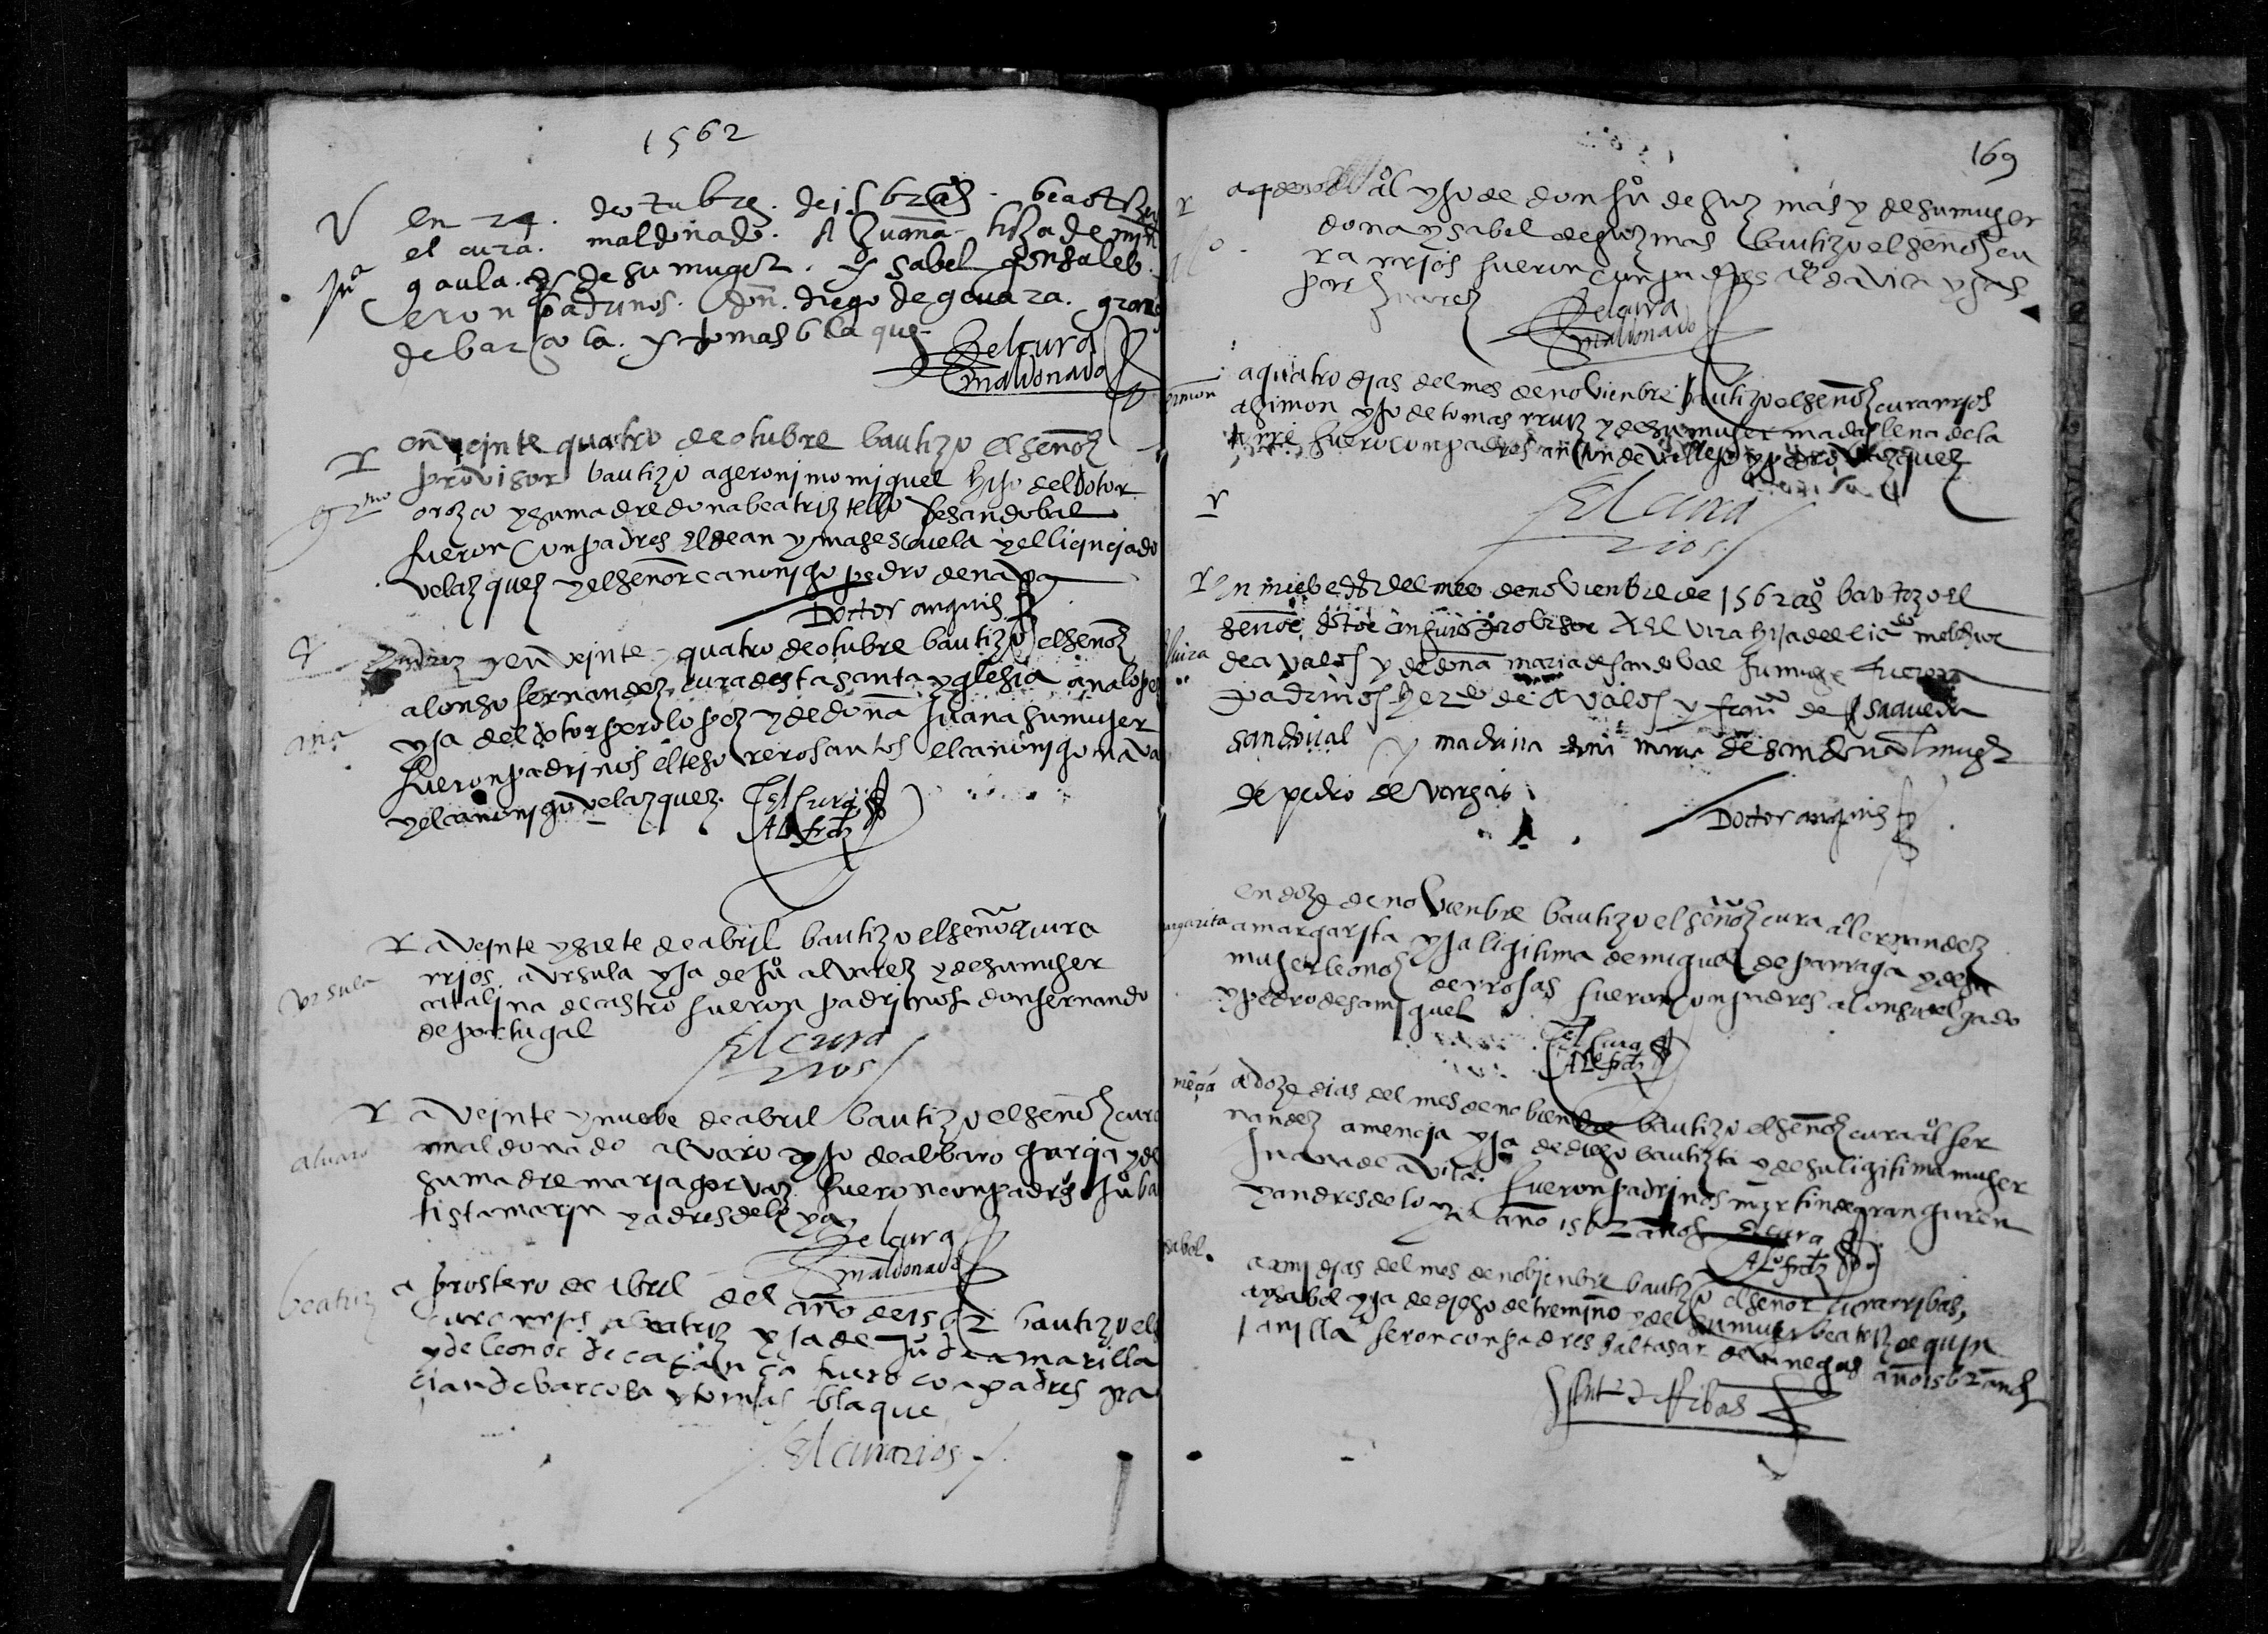 1562
V en 24. de otubre. de 1562 as.
el cura. maldonado. A Juana. hija de
Ju.a gaula. y de su muger. ysabel gonsales.
eron padrinos. don. diego de gevara.
de barcola. y tomas blaque
el cura
maldonado
en vejnte quatro de otubre bautizo el señor
provisor bautizo a geronimo miguel hijo del dotor
gr.mo orozco y su madre dona beatriz tello de sandobal
fueron conpadres el dean y masescuela y el liçençiado
velazquez y el señor canonigo pedro de nava
Doctor anguis
en vejnte y quatro de otubre bautizo el señor
alonso fernandez cura desta santa yglesia a na lopez
ana yja del dotor pero lopez y de doña juana su muger
fueron padrinos el tesorero santos el canonigo nava
y el canonigo velazquez. el cura
Al.o frrz
r a vejnte y siete de abril bautizo el señor cura
vrsula rrjos a vrsula yja de ju.o alvarez y de su muger
catalina de castro fueron padrinos don fernando
de portugal
El cura
rios
r a vejnte y nuebe de abril bautizo el señor cura
alvaro maldonado a alvaro yjo de albaro garçia y de
su madre marja fueron conpadres ju.o ba
tista marin y adres de
el cura
maldonado
beatriz a prostero de abril del año de 1562 bautizo el
cura rrjos a beatriz yja de ju.o de camarilla
y de leonor de fuero conpadres gra
çian de barcola y tomas blaque
El cura rios
169
r al.o yjo de don ju.o de guzman y de su muger
dona ysabel de guzman bautizo el señor cu
ra rrjos fueron conpadres al.o davila y gas
par Juarez
el cura
maldonado
simon a quatro djas del mes de novienbre bautizo el señor cura rrjos
a simon yjo de tomas rruiz y de su muger madaglena de la
torre fuero conpadres anton de vallejo y pedro vazquez
r El cura
rios
r en nuebe ds del mes de novienbre de 1562 as bautizo el
señor dotor anguis probisor A Elvira hija del lic.do melchior
elvira de avalos y de doña maria de sandobal su muger fueron
padrinos de avalos y fran.co de saavedra
sandoval y madrina doña maria de sandoval muger
de pedro de vargas
Doctor anguis
en doze de novienbre bautizo el señor cura al.o fernandez
margarita a margarita yja ligitima de miguel de parraga y de su
muger leonor de rrojas fueron conpadres alonso delgado
y pedro de san miguel
el cura
Al.o frrz
mençia a doze dias del mes de nobienbre bautizo el señor cura al.o fer
nandez a mençja yja de diego bautizta y de su ligitima muger
juana de avila. fueron padrinos martin de granguren
y andres de año 1562 años el cura
Al.o frrz
ysabel. djas del mes de nobjenbre bautizo el señor cura rribas
a ysabel yja de djego de tremino y de su muger beatriz de qujn
tanilla feron conpadres baltasar de venegas año 1562 años
de Ribas